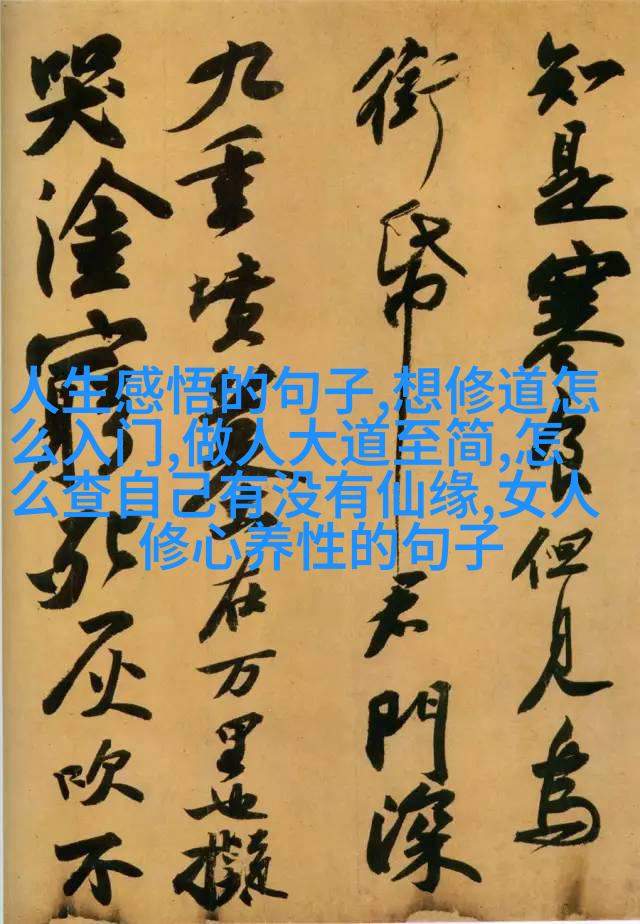 知是寒食但見烏
銜帋君門深
九重墳墓在万里也擬
哭塗窮死灰吹不
人生感悟的句子,想修道怎
么入门,做人大道至简,怎
么查自己有没有仙缘,女人
修心养性的句子